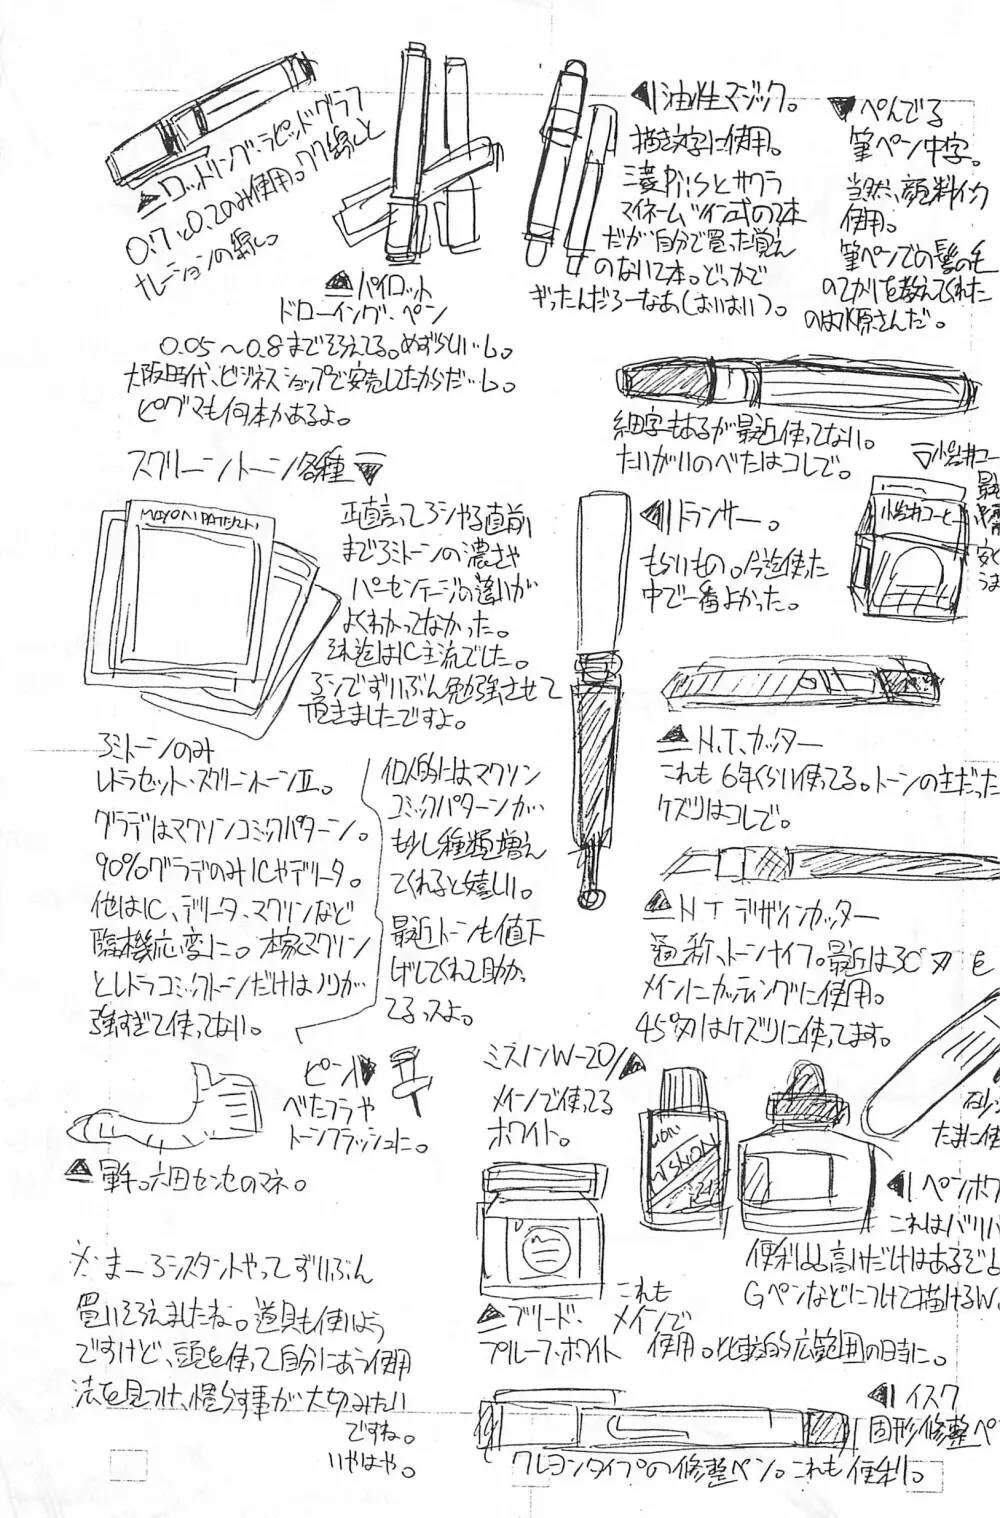 ▲ロットリング・ラピッドグラフ
0.7と0.2のみ使用。ワク線と
ナレーションの線に。
▲パイロット
ドローイング・ペン
0.05〜0.8までそろえてる。めずらしいっしょ。
大阪時代、ビジネスショップで安売してたからだいし。
ピグマも何本かあるよ。
◀油性マジック。
描き文字に使用。
三菱Piisとサクラ
マイネームツイン式の2本
だが自分で買った覚え
のない2本。どっかで
ぎったんだろーなあ(おいおい)。
▼ぺんてる
筆ペン中字。
当然、顔料インク
使用。
筆ペンでの髪の毛
のてかりを教えてくれた
のは水原さんだ。
細字もあるが最近使ってない。
たいがいのべたはコレで。
スクリーントーン各種▼
正直言ってアシやる直前
までアミトーンの濃さや
パーセンテージの違いが
よくわかってなかった。
それ迄はIC主流でした。
アシでずいぶん勉強させて
頂きましたですよ。
◀トランサー。
もらいもの。今迄使った
中で一番よかった。
▽小岩井コー
小岩井コーヒー
最
安く
うま
アミトーンのみ
レトラセット・スクリーントーンⅡ。
グラデはマクソンコミックパターン。
90%グラデのみICやデリータ。
他はIC、デリータ、マクソンなど
臨機応変に。本家マクソン
とレトラコミックトーンだけはノリが
強すぎて使ってない。
個人的にはマクソン
コミックパターンが
もう少し種類増え
てくれると嬉しい。
最近トーンも値下
げしてくれて助かっ
てるっスよ。
▲N.T.カッター
これも6年くらい使ってる。トーンの主だった
ケズリはコレで。
▲NTデザインカッター
通称、トーンナイフ。最近は30°刃を
メインにカッティングに使用。
45°刃はケズリに使ってます。
ピン▶
べたフラや
トーンフラッシュに。
▲軍手。六田センセのマネ。
ミスノンW-20▲
メインで使ってる
ホワイト。
MISNON
たまに使
◀ペンホワ
これはバリバ
便利。
Gペンなどにつけて描けるw。
▲ブリード・
プルーフ・ホワイト
これも
メインで
使用。比較的広範囲の時に。
※まーアシスタントやってずいぶん
買いそろえましたね。道具も使いよう
ですけど、頭を使って自分にあう使用
法を見つけ、慣らす事が大切みたい
ですね。
いやはや。
◀イスク
固形修整ペ
クレヨンタイプの修整ペン。これも便利。